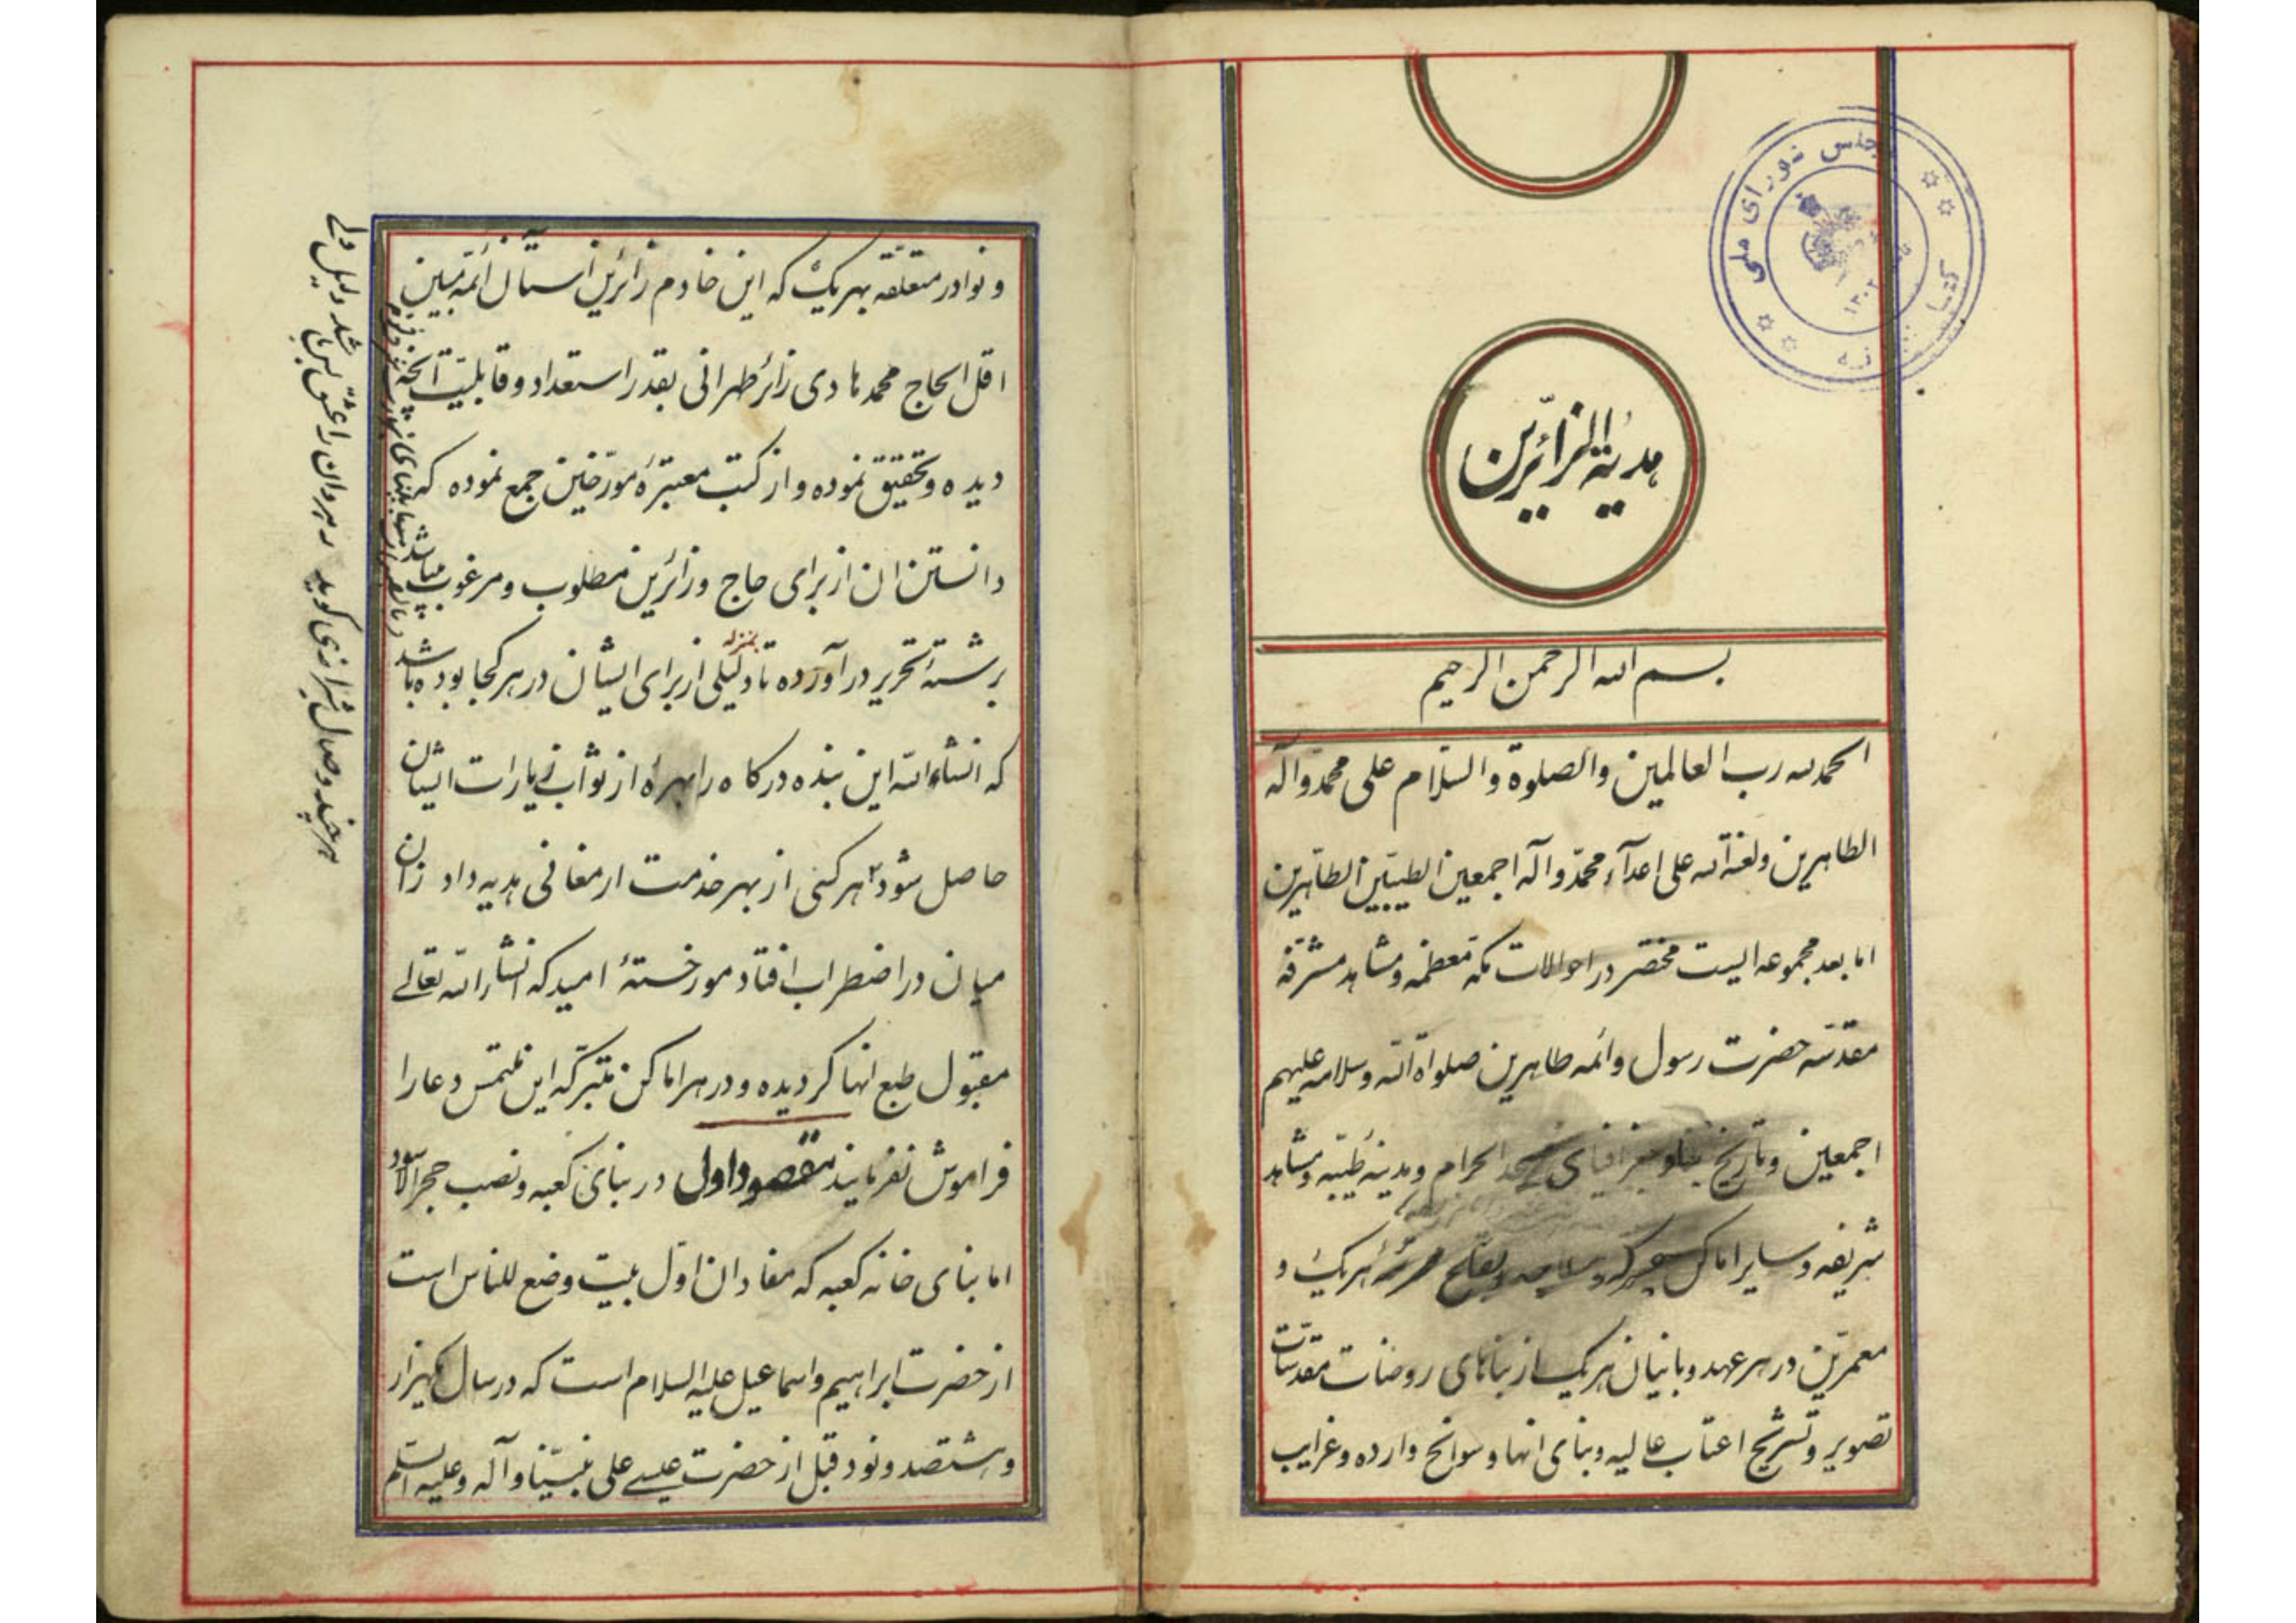 هدیة الزائرین
بسم الله الرحمن الرحیم
الحمد لله رب العالمین والصلوة والسلام علی محمد وآله
الطاهرین ولعنة الله علی اعدآء محمد وآله اجمعین الطیبین الطاهرین
اما بعد مجموعه ایست مختصر در احوالات مکه معظمه ومشاهد مشرفه
مقدسه حضرت رسول وائمه طاهرین صلواة الله وسلامه علیهم
اجمعین وتاریخ بنا وجغرافیای مسجد الحرام ومدینه طیبه ومشاهد
شریفه وسایر اماکن هریک و
معمرین در هر عهد وبانیان هریک از بناهای روضات مقدسات
تصویر وتشریح اعتاب عالیه وبنای انها وسوانح وارده وغرایب
ونوادر متعلقه بهریک که این خادم زائرین استان ائمه مبین
اقل الحاج محمد هادی زائر طهرانی بقدر استعداد وقابلیت آنچه
دیده وتحقیق نموده واز کتب معتبرهٔ مورخین جمع نموده که
دانستن ان از برای حاج وزائرین مطلوب ومرغوب میباشد
برشتهٔ تحریر در آورده تا بمنزله دلیلی از برای ایشان در هر کجا بوده باشد
که انشاءالله این بنده درگاه را بهرهٔ از ثواب زیارات ایشان
حاصل شود هر کسی از بهر خدمت ارمغانی هدیه داد زان
میان در اضطراب افتاد مور خستهٔ امید که انشاءالله تعالی
مقبول طبع انها گردیده ودر هر اماکن متبرکه این ملتمس دعا را
فراموش نفرمایند مقصود اول در بنای کعبه ونصب حجرالاسود
اما بنای خانه کعبه که مفاد ان اول بیت وضع للناس است
از حضرت ابراهیم واسماعیل علیه السلام است که در سال یکهزار
وهشتصد ونود قبل از حضرت عیسی علی نبینا وآله وعلیه السلم
هر چند وصال شیرازی گوید رهروان را عشق بس باشد دلیل ولی
مجلس شورای ملی
۱۳۰۲